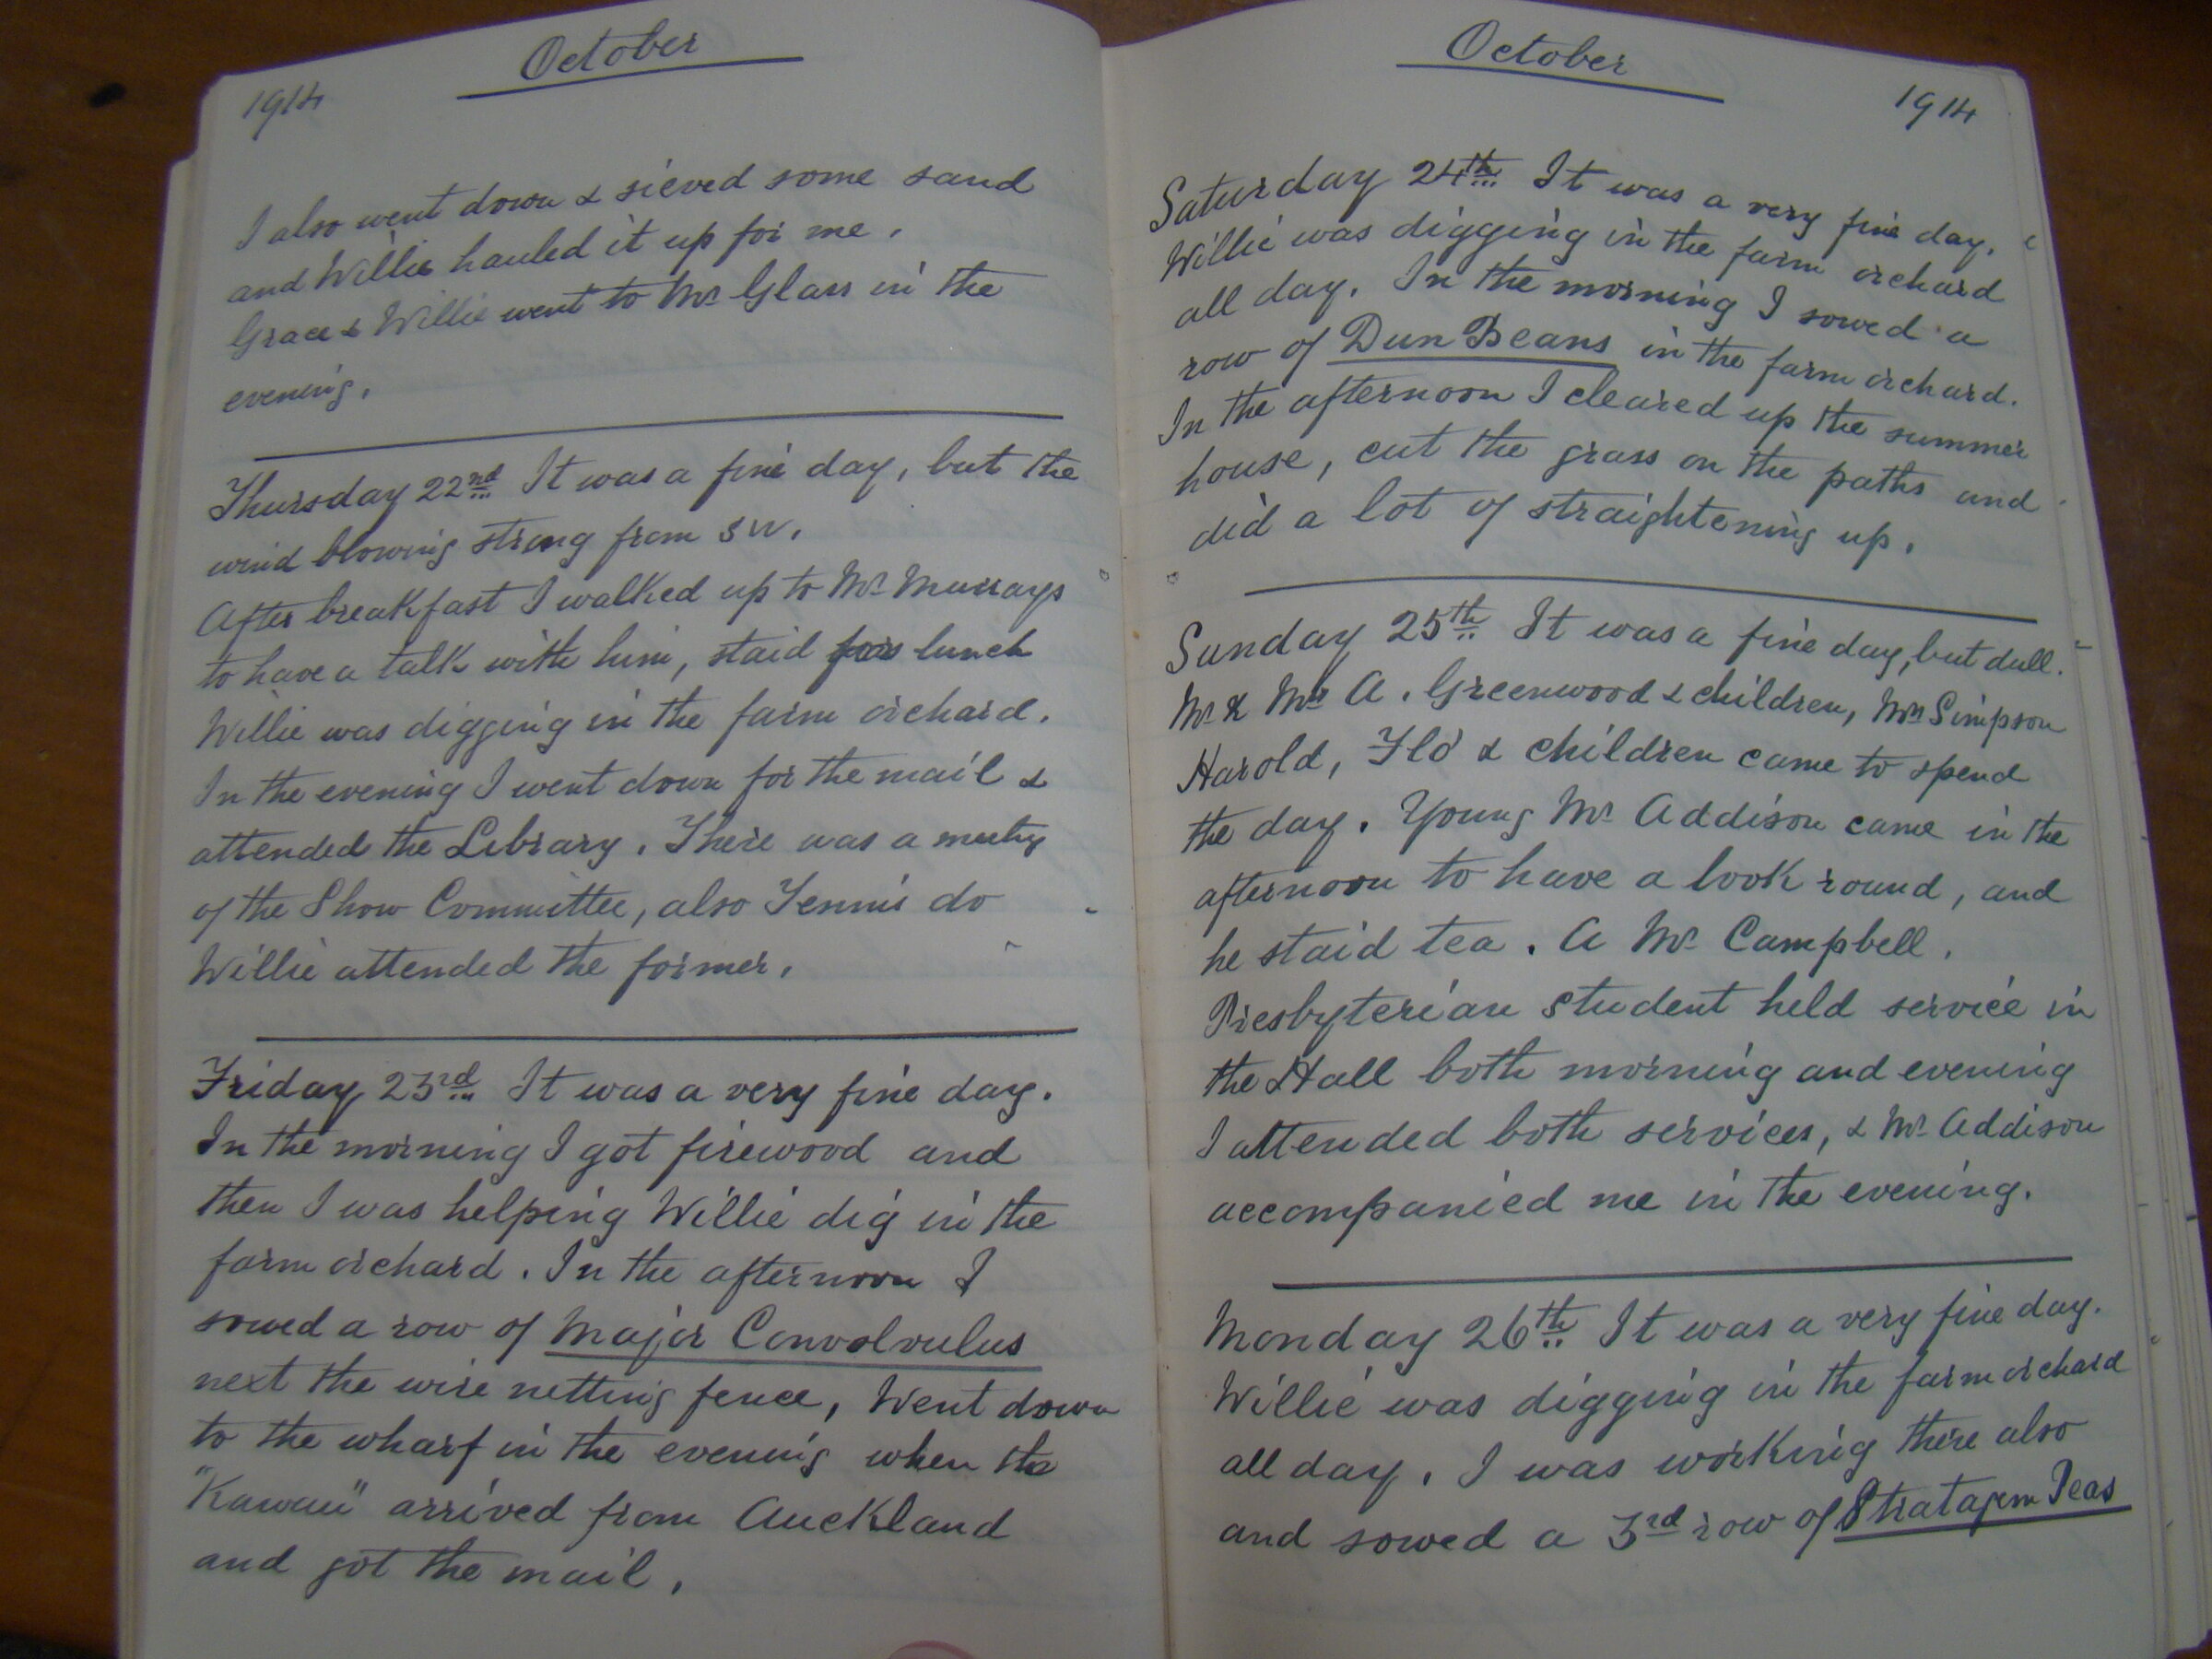 October
1914
I also went down & sieved some sand
and Willie hauled it up for me.
Grace & Willie went to Mr Glass in the
evening.
Thursday 22nd It was a fine day, but the
wind blowing strong from SW.
After breakfast I walked up to Mr Murrays
to have a talk with him, staid for lunch
Willie was digging in the farm orchard.
In the evening I went down for the mail &
attended the Library. There was a meeting
of the Show Committee, also Tennis do
Willie attended the former.
Friday 23rd It was a very fine day.
In the morning I got firewood and
then I was helping Willie dig in the
farm orchard. In the afternoon I
sowed a row of Major Convolvulus
next the wire netting fence, Went down
to the wharf in the evening when the
"Kawau" arrived from Auckland
and got the mail.
October
1914
Saturday 24th It was a very fine day.
Willie was digging in the farm orchard
all day. In the morning I sowed a
row of Dun Beans in the farm orchard.
In the afternoon I cleared up the summer
house, cut the grass on the paths and
did a lot of straightening up.
Sunday 25th It was a fine day, but dull.
Mr & Mrs A. Greenwood & children, Mrs Simpson
Harold, Flo & children came to spend
the day. Young Mr Addison came in the
afternoon to have a look round, and
he staid tea. A Mr Campbell.
Presbyterian student held service in
the Hall both morning and evening
I attended both services, & Mr Addison
accompanied me in the evening.
Monday 26th It was a very fine day.
Willie was digging in the farm orchard
all day. I was working there also
and sowed a 3rd row of Stratagem Peas